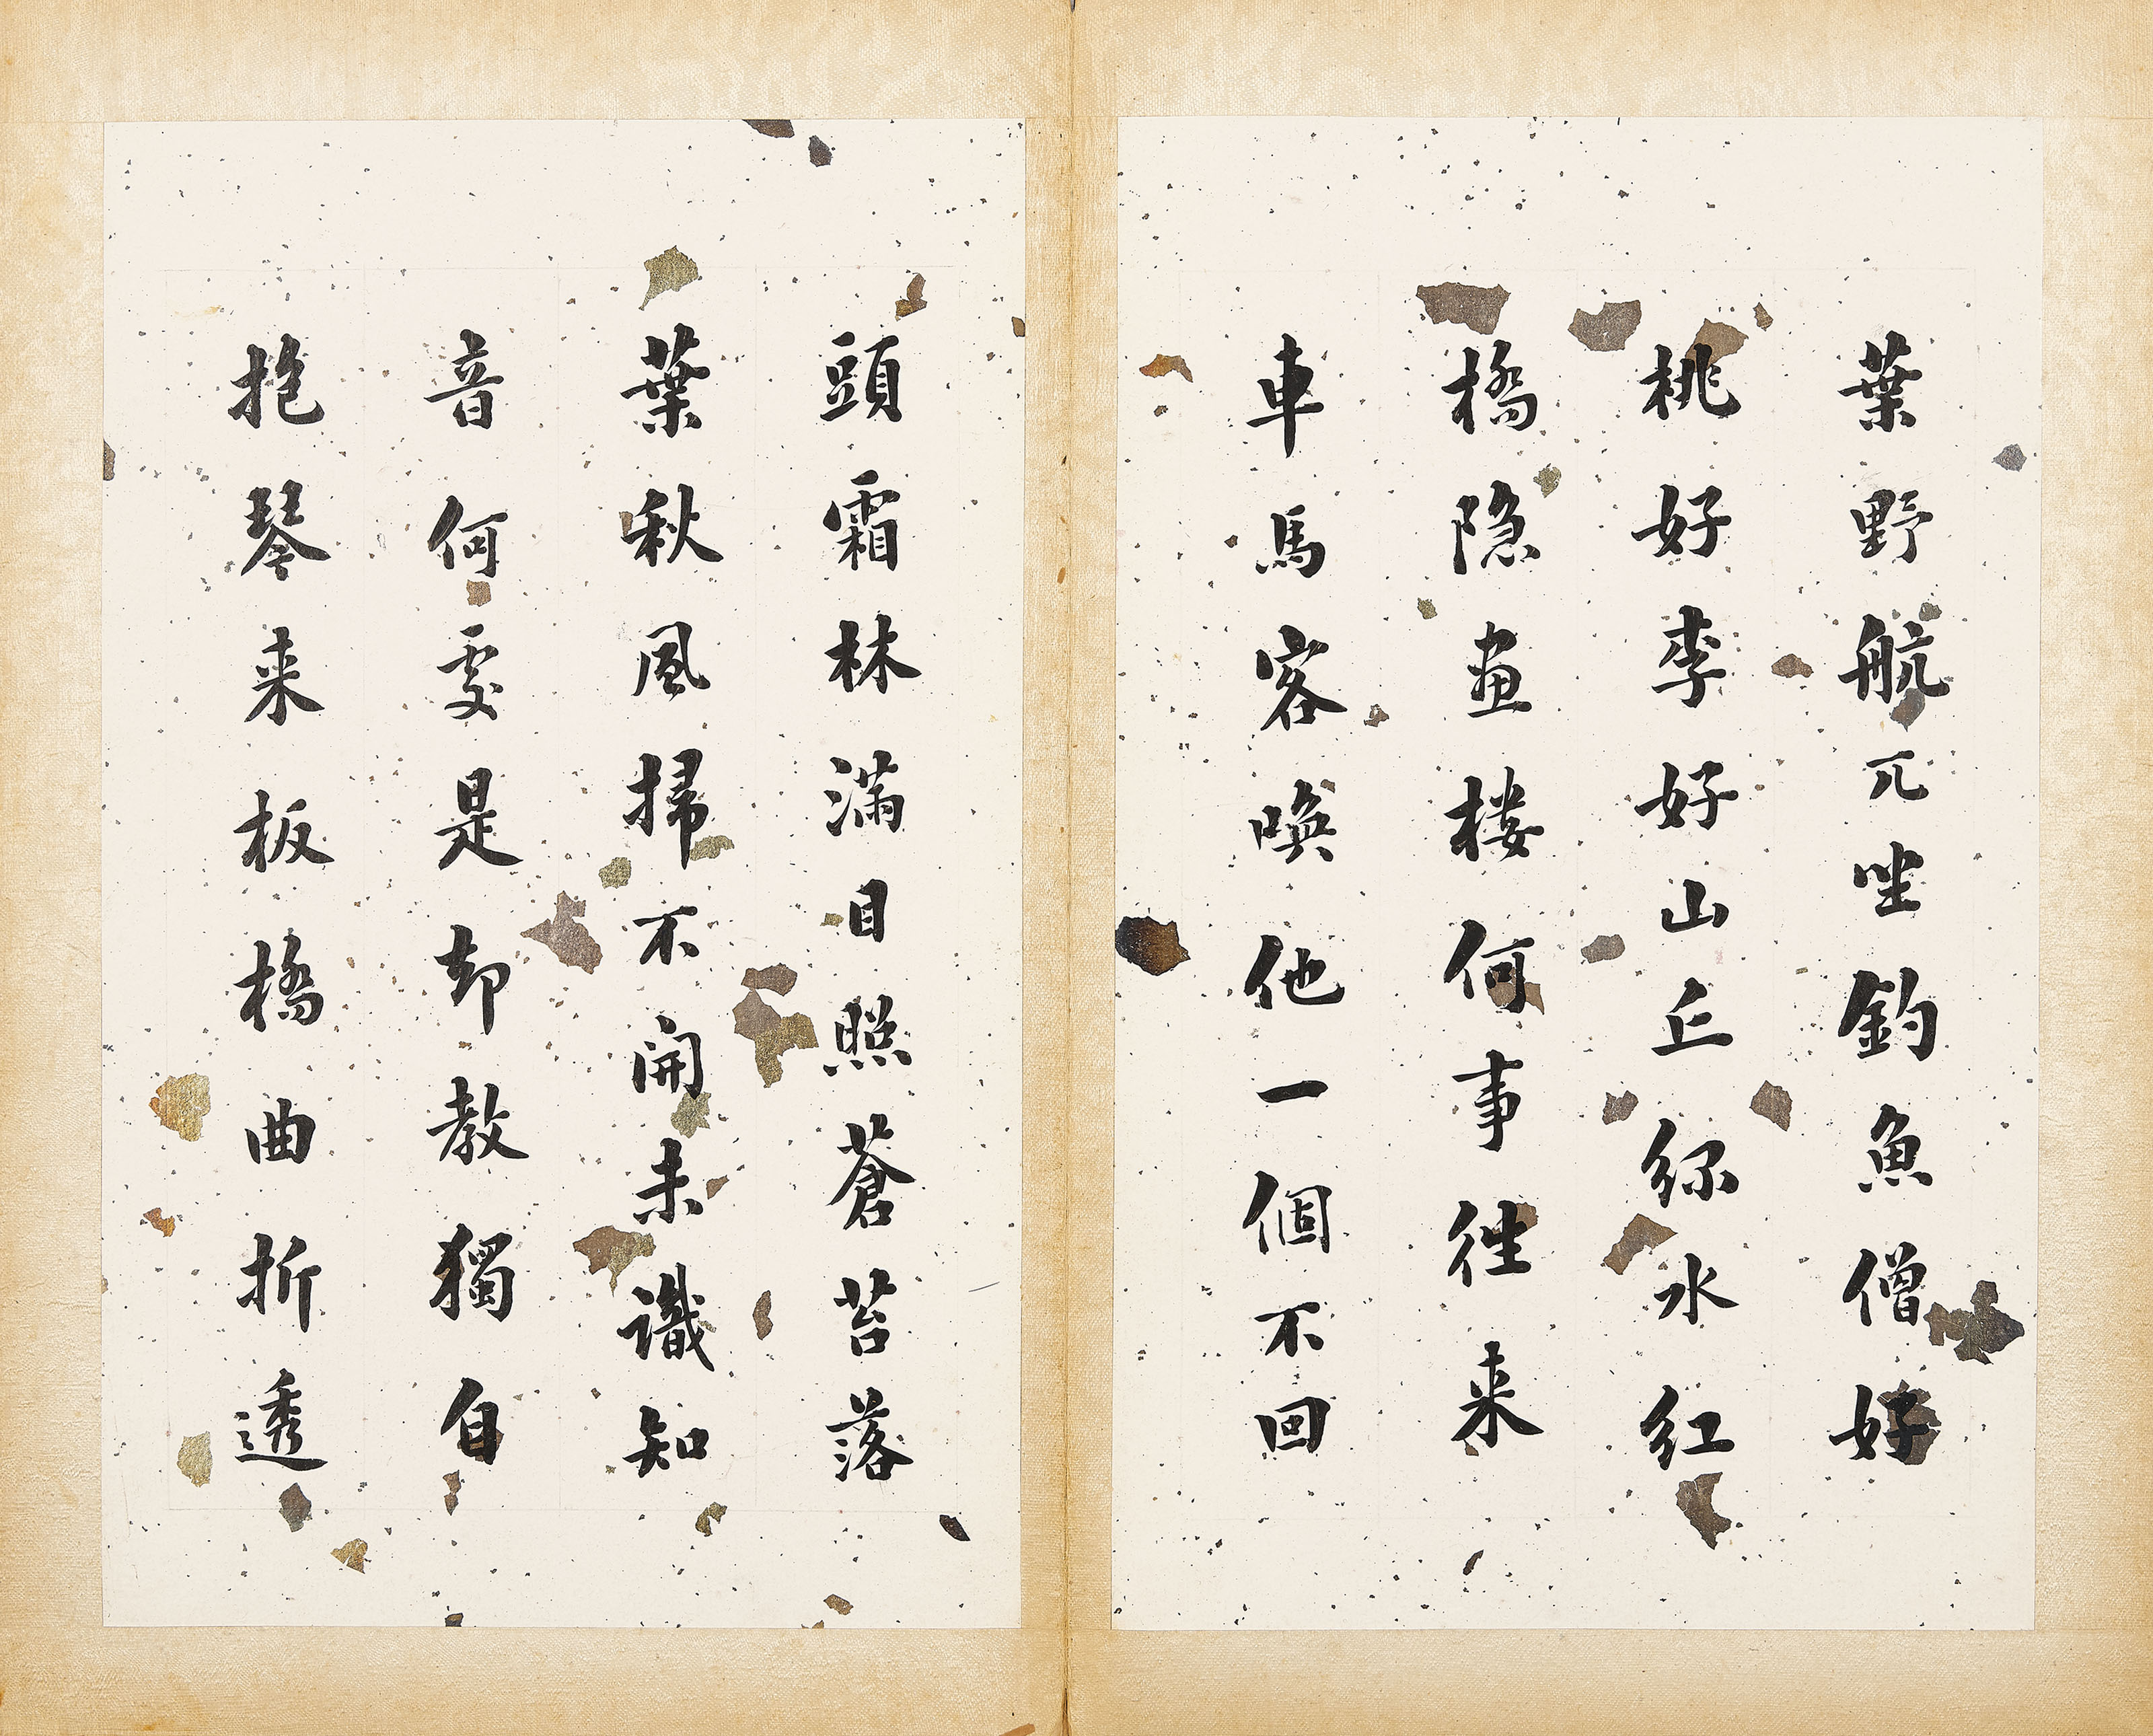 葉野航兀坐釣魚僧好
桃好李好山丘綠水红
橋隐畫楼何事往来
車馬客喚他一個不回
頭霜林滿目照蒼苔落
葉秋風掃不開未識知
音何處是却教獨自
抱琴来板橋曲折透